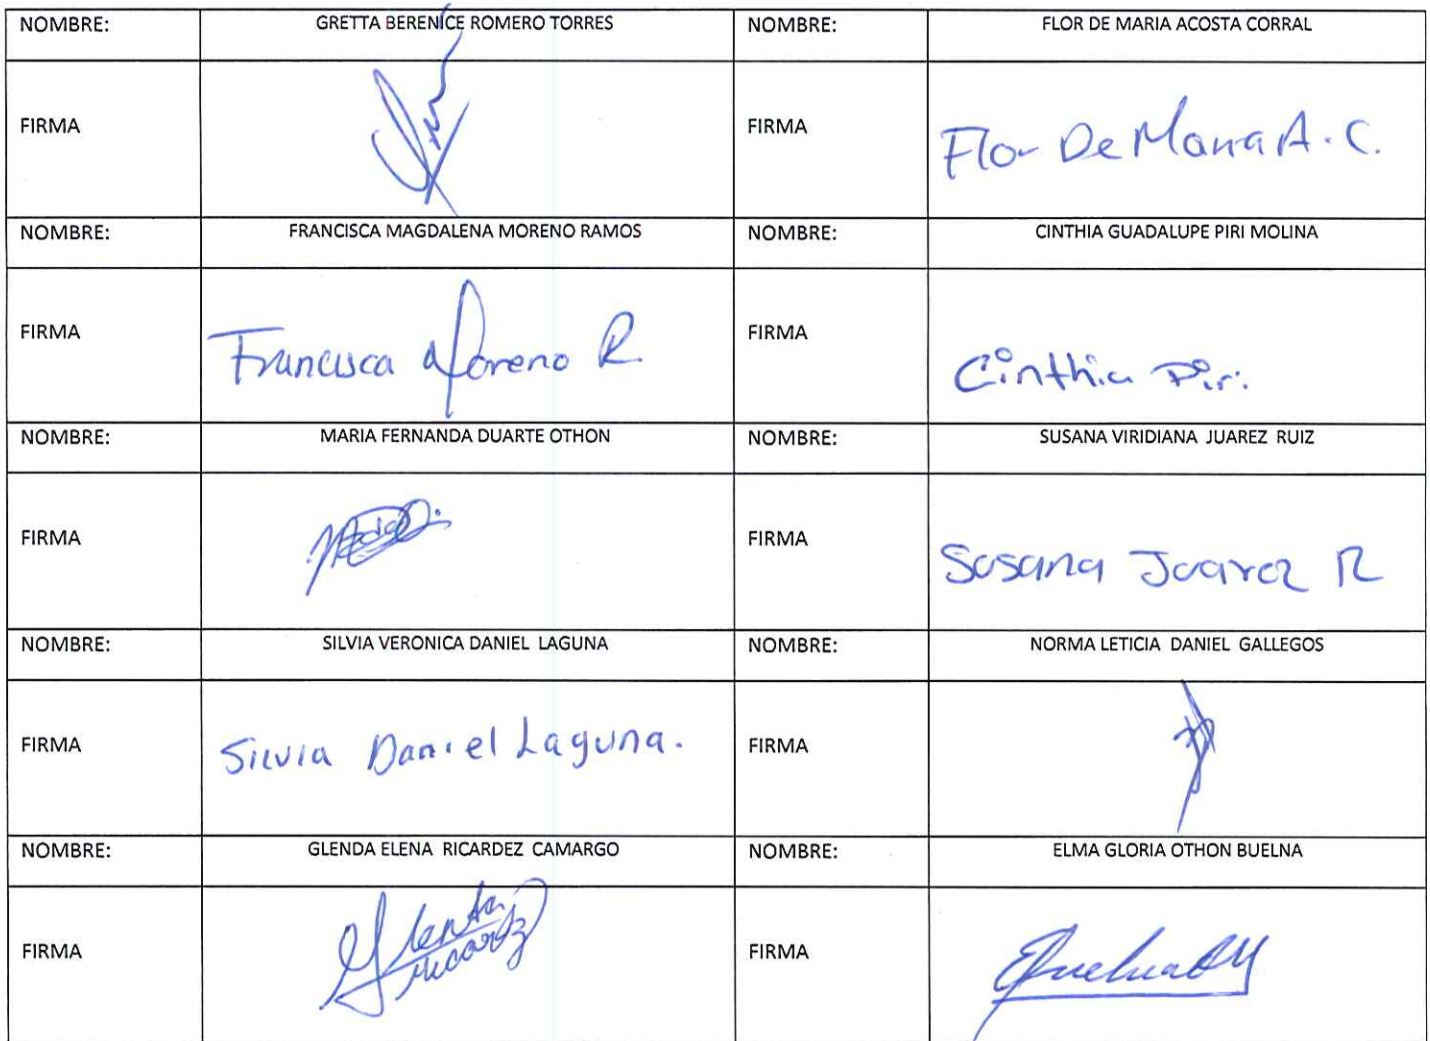 NOMBRE: GRETTA BERENICE ROMERO TORRES NOMBRE: FLOR DE MARIA ACOSTA CORRAL
FIRMA FIRMA Flor De Maria A. C.
NOMBRE: FRANCISCA MAGDALENA MORENO RAMOS NOMBRE: CINTHIA GUADALUPE PIRI MOLINA
FIRMA Francisca Moreno R. FIRMA Cinthia Piri
NOMBRE: MARIA FERNANDA DUARTE OTHON NOMBRE: SUSANA VIRIDIANA JUAREZ RUIZ
FIRMA FIRMA Susana Juarez R
NOMBRE: SILVIA VERONICA DANIEL LAGUNA NOMBRE: NORMA LETICIA DANIEL GALLEGOS
FIRMA Silvia Daniel Laguna. FIRMA
NOMBRE: GLENDA ELENA RICARDEZ CAMARGO NOMBRE: ELMA GLORIA OTHON BUELNA
FIRMA FIRMA